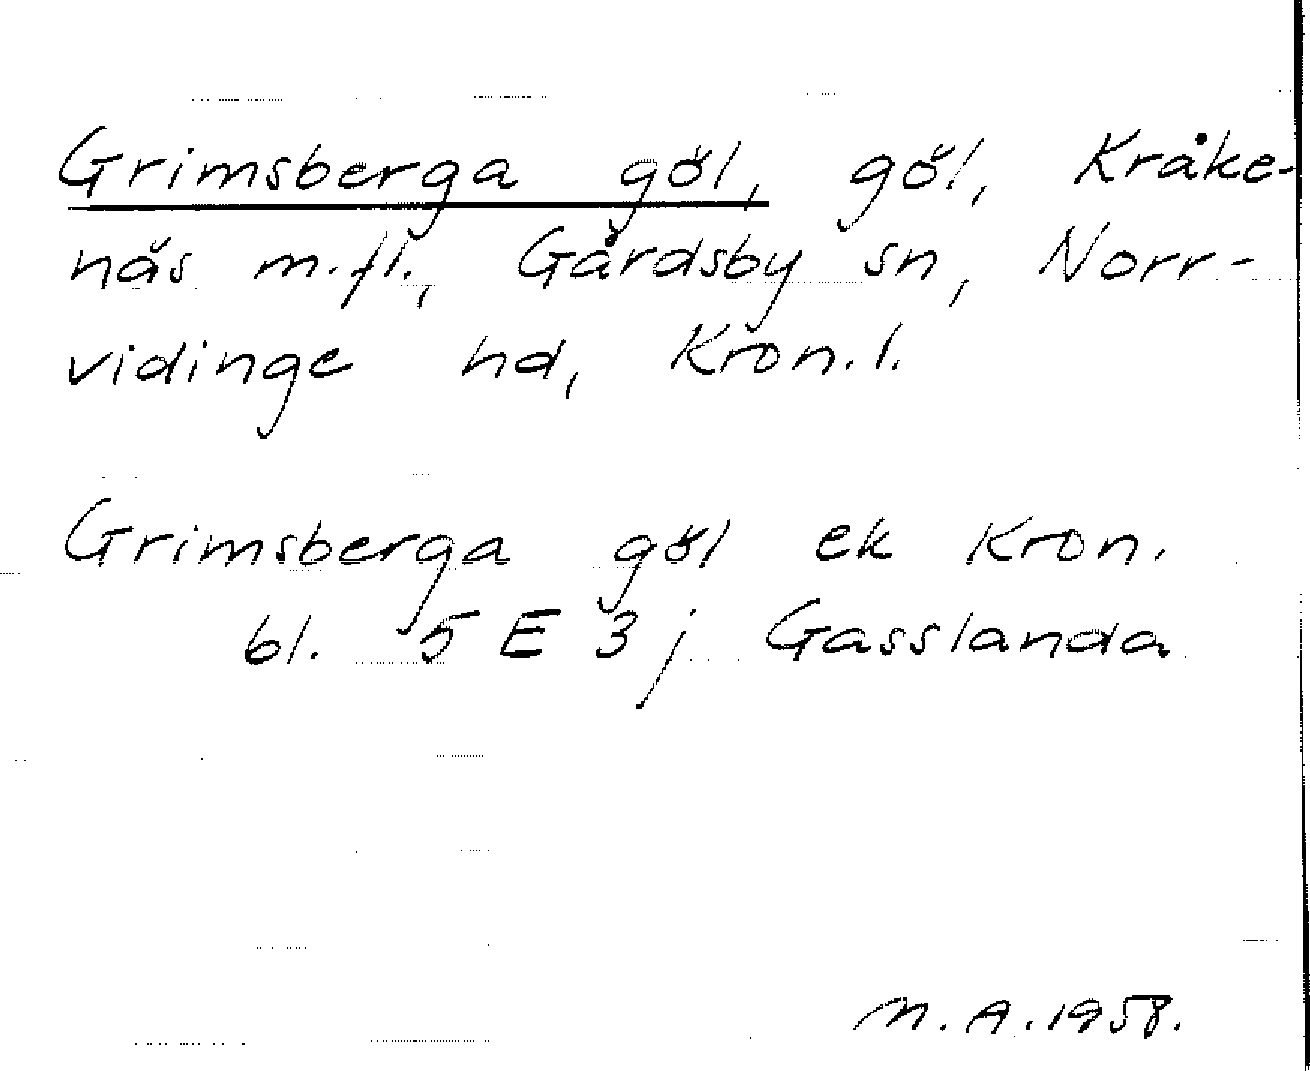 Grimsberga göl, göl, Kråke-
näs m.fl., Gårdsby sn, Norr-
vidinge hd, Kron.l.
Grimsberga göl ek Kron.
bl. 5 E 3 j Gasslanda
M.A.1958.